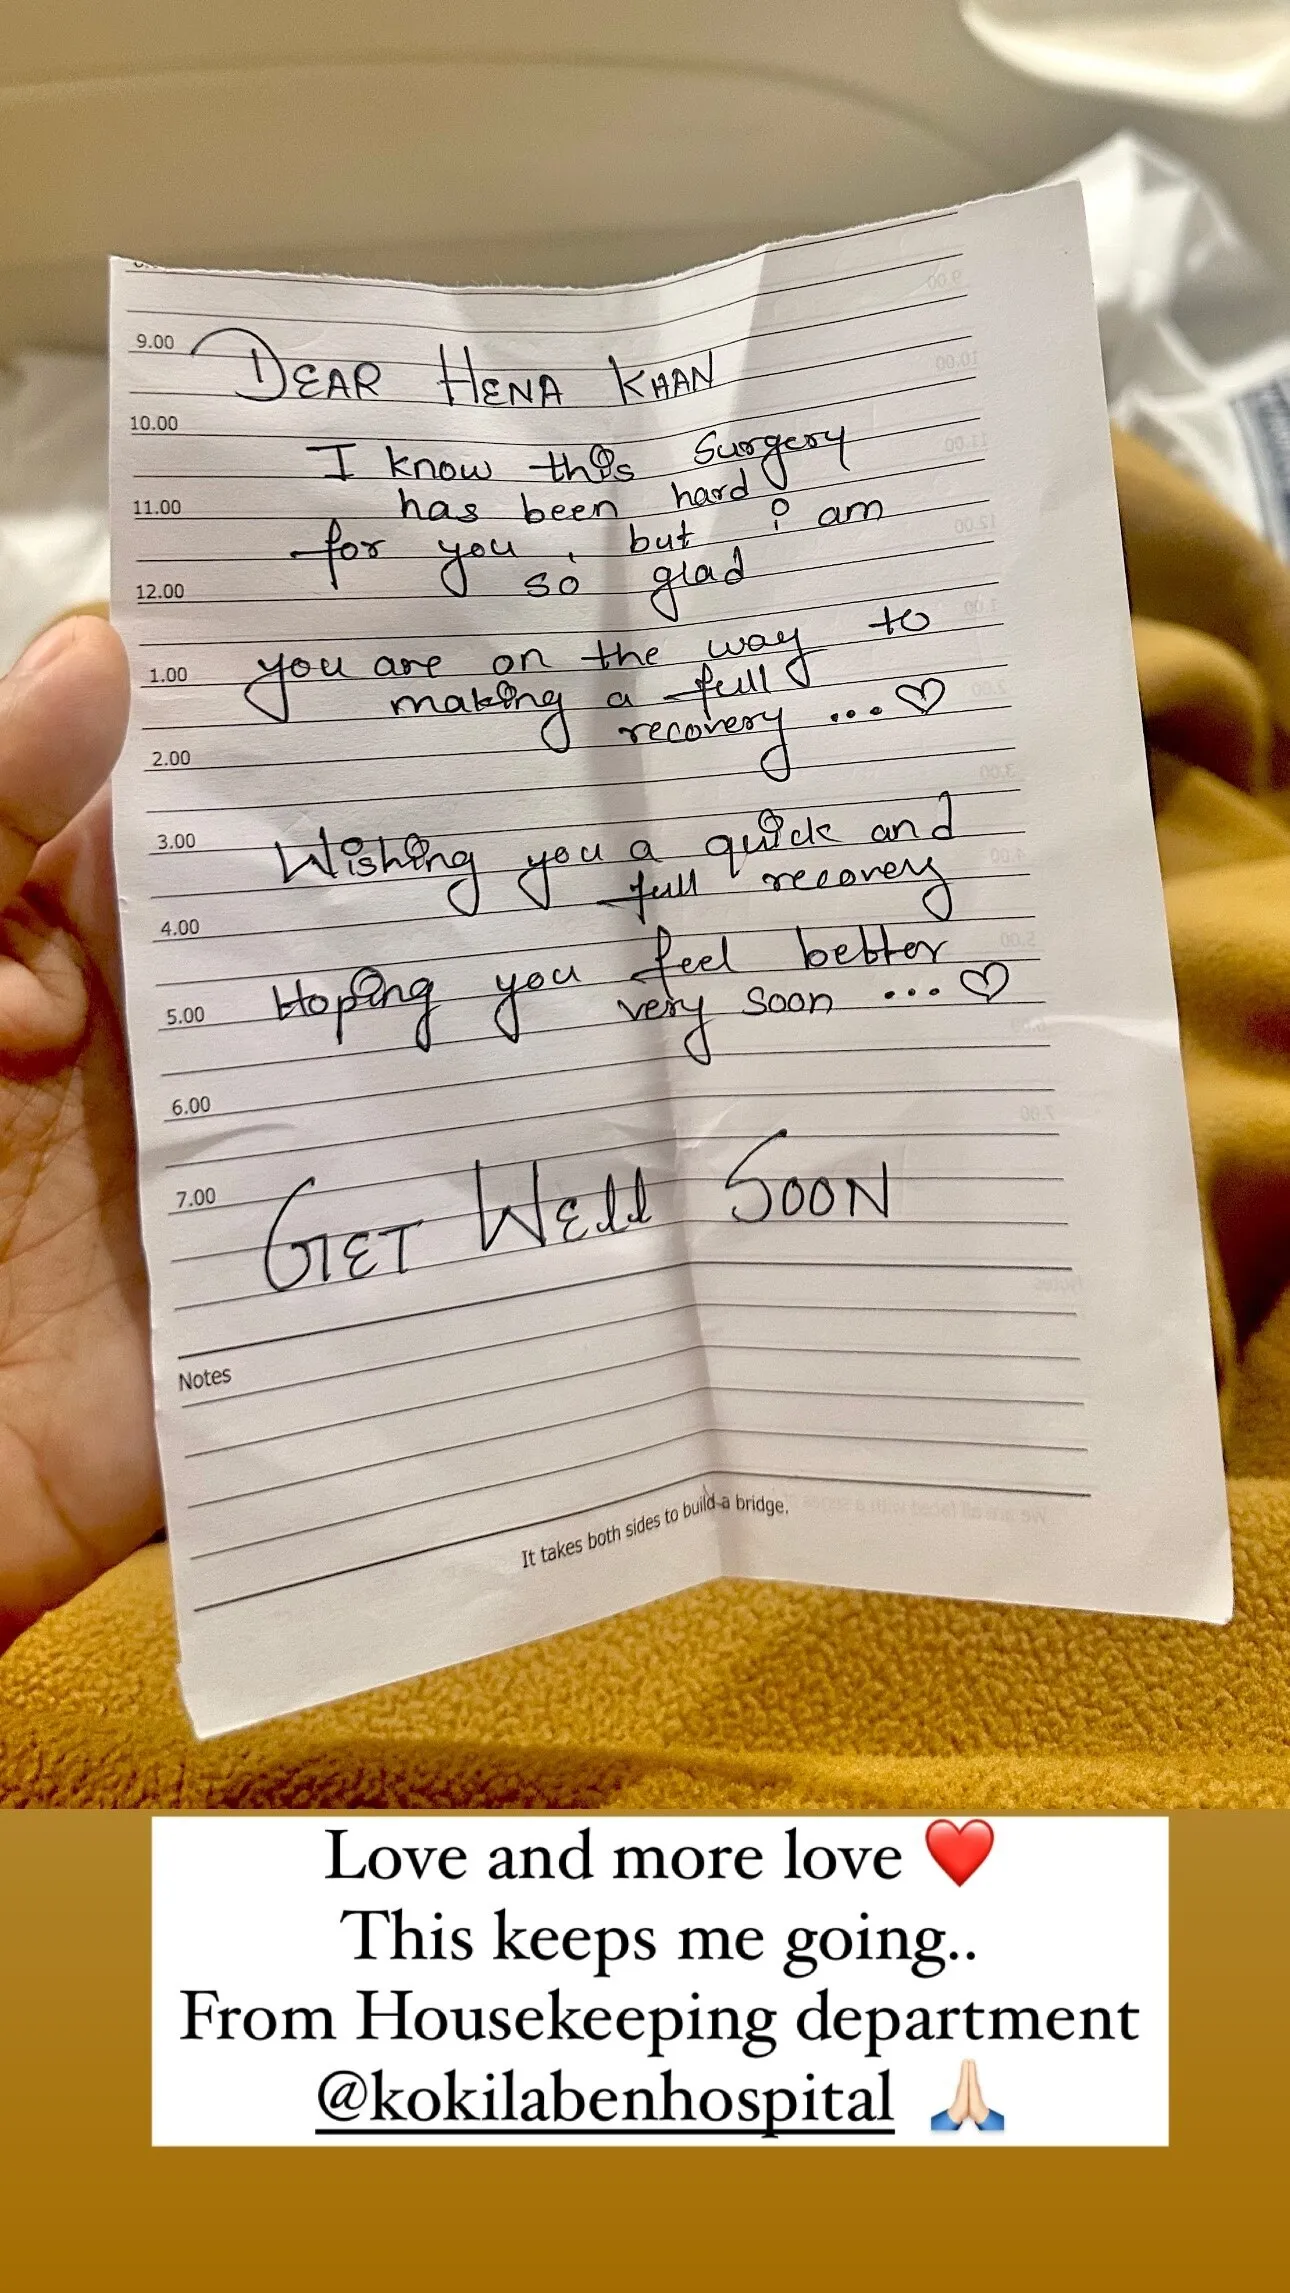 9.00
DEAR HENA KHAN
10.00
I know this Surgery
11.00
has been hard
for you, but i am
12.00
so glad
1.00
you are on the way to
making a full
recovery ...♡
2.00
3.00
Wishing you a quick and
full recovery
4.00
Hoping you feel better
5.00
very soon ...♡
6.00
7.00
GET WEll SOON
Notes
It takes both sides to build a bridge.
Love and more love ❤️
This keeps me going..
From Housekeeping department
@kokilabenhospital 🙏🏻